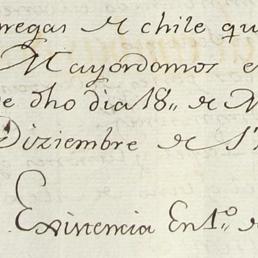 rregas de chile qu
Mayordomos e
e dho dia 18,, de N
Diziembre de 17
Existencia En 1º de